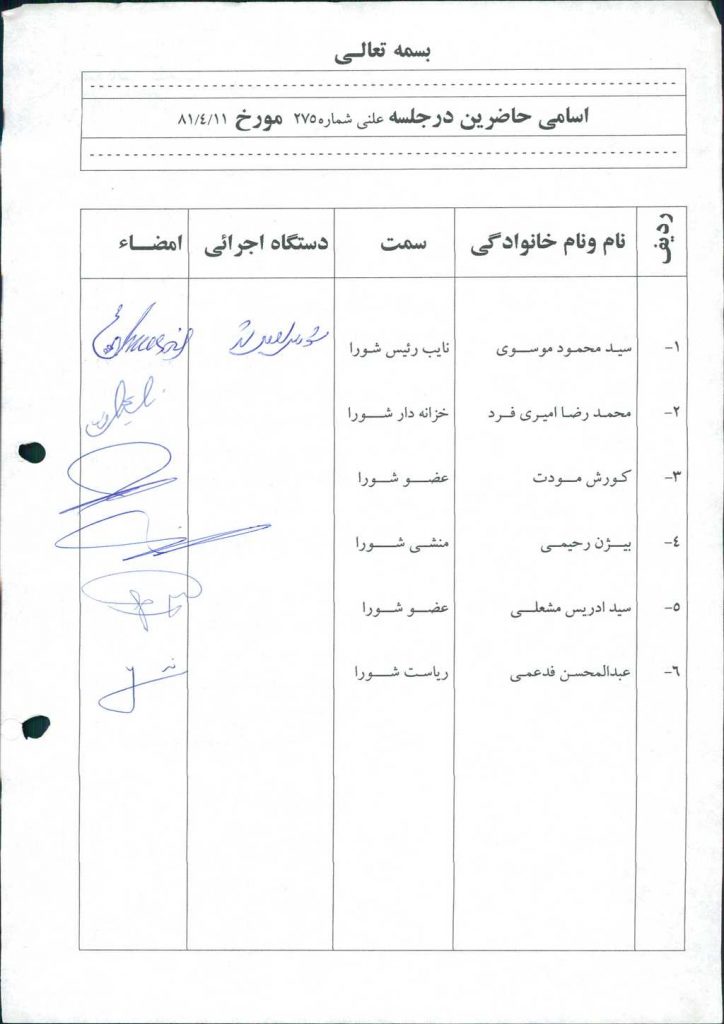 بسمه تعالی
اسامی حاضرین درجلسه علنی شماره ۲۷۵ مورخ ۸۱/٤/۱۱
ردیف نام ونام خانوادگی سمت دستگاه اجرائی امضاء
۱- سید محمود موسوی نایب رئیس شورا
۲- محمد رضا امیری فرد خزانه دار شورا
۳- کورش مودت عضو شورا
٤- بیژن رحیمی منشی شورا
۵- سید ادریس مشعلی عضو شورا
٦- عبدالمحسن فدعمی ریاست شورا